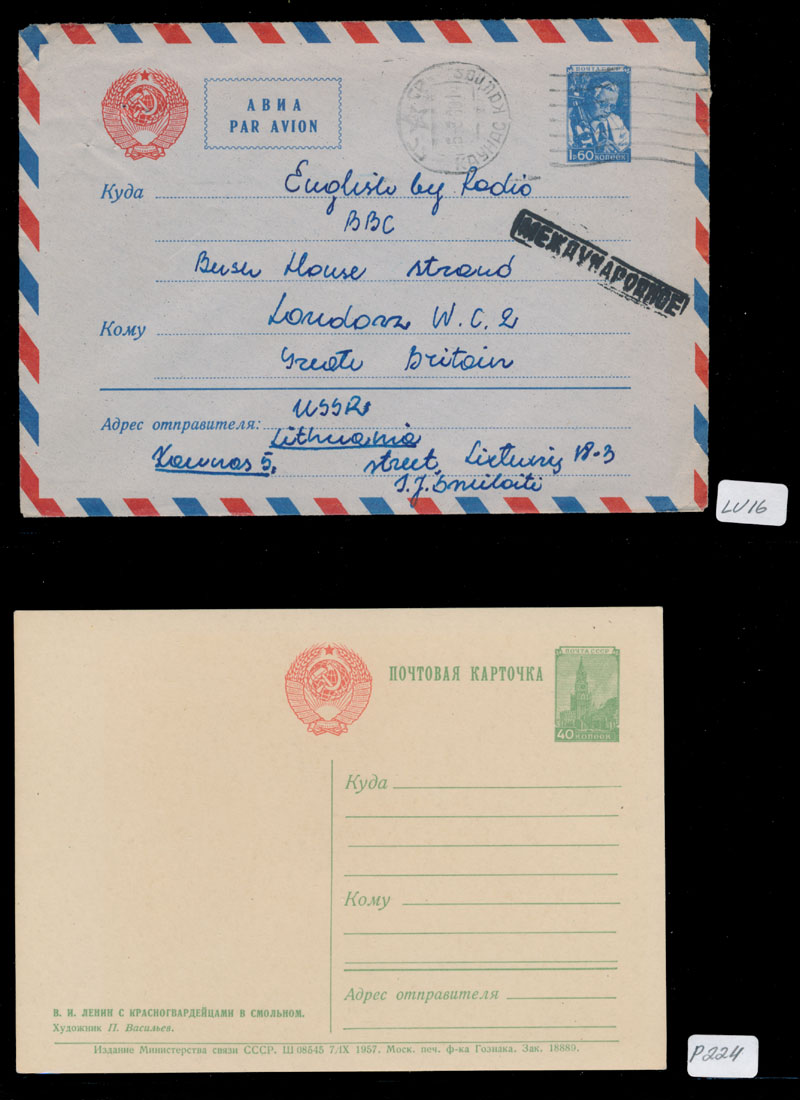 АВИА
PAR AVION
ПОЧТА СССР
1р.60 КОПЕЕК
КАУНАС
Куда
English by Radio
BBC
МЕЖДУНАРОДНОЕ
Bush House Strand
Кому
London W.C.2
Great Britain
Адрес отправителя:
USSR
Lithuania
Kaunas 5,
street, 18-3
LV16
ПОЧТОВАЯ КАРТОЧКА
ПОЧТА СССР
40 КОПЕЕК
Куда
Кому
Адрес отправителя
В. И. ЛЕНИН С КРАСНОГВАРДЕЙЦАМИ В СМОЛЬНОМ.
Художник П. Васильев.
Издание Министерства связи СССР. Ш 08545 7/IX 1957. Моск. печ. ф-ка Гознака. Зак. 18889.
P224